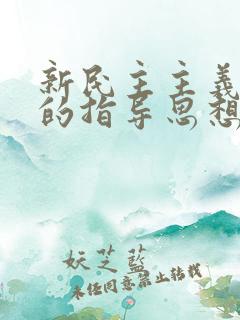 新民主主义
的指导思想
妖芝蓝
未经同意禁止转载